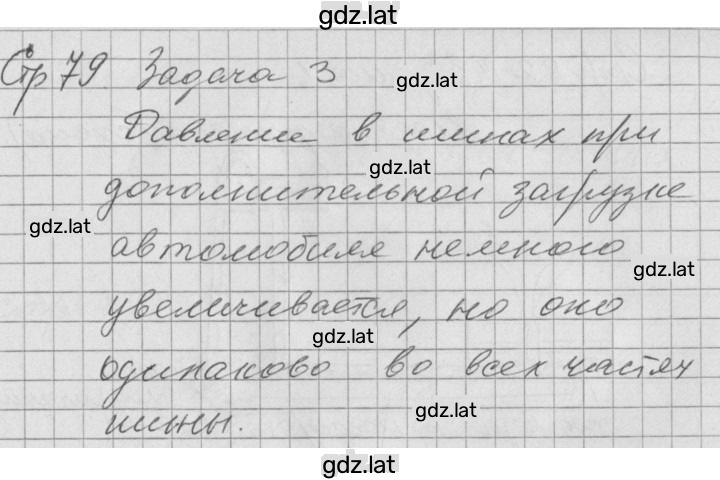 gdz.lat
Стр 79 Задача 3
gdz.lat
Давление в шинах при
gdz.lat
дополнительной загрузке
gdz.lat
автомобиля немного
gdz.lat
увеличивается, но оно
gdz.lat
одинаково во всех частях
gdz.lat
шины.
gdz.lat